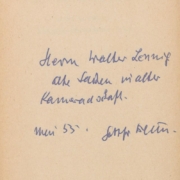 Herrn Walter Lennig
alte Sachen in alter
Kameradschaft.
Mai 55.